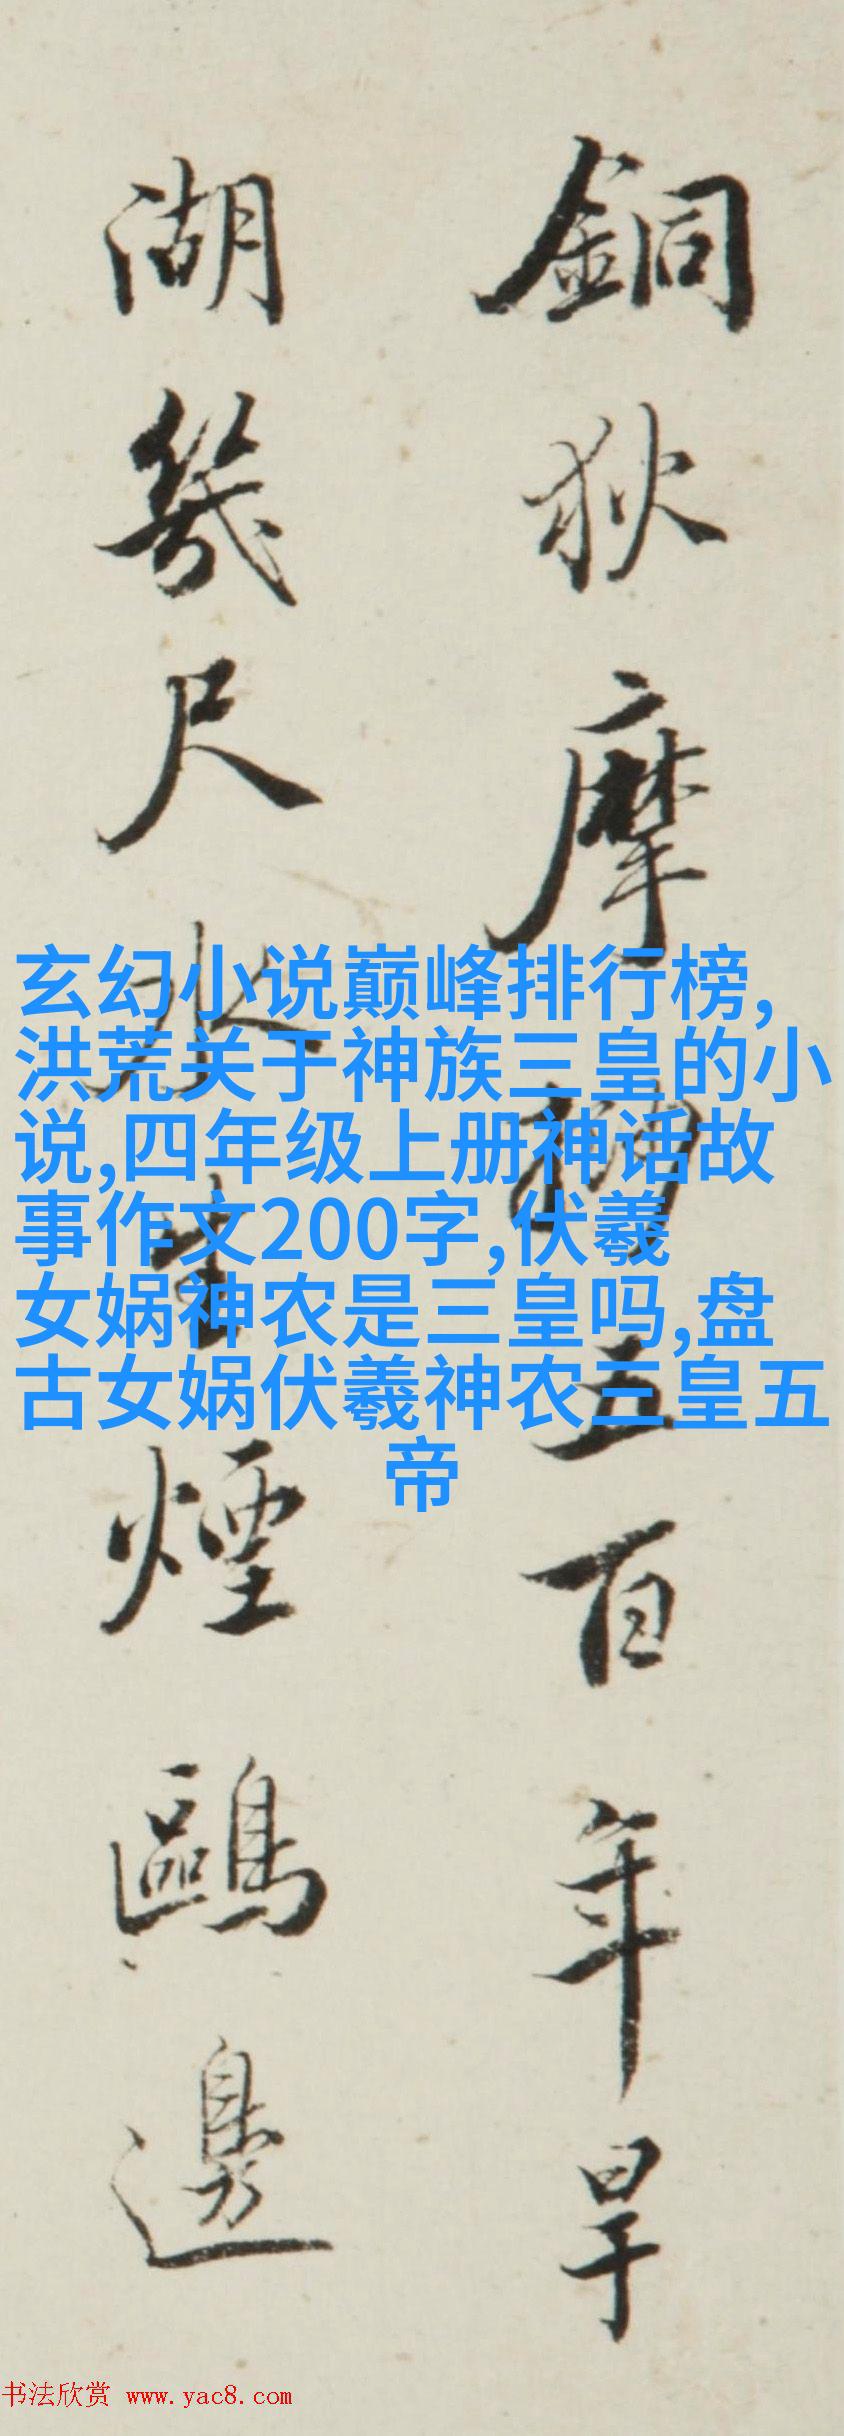 銅狄摩挲五百年旱
湖幾尺水生煙鷗邊
玄幻小说巅峰排行榜,
洪荒关于神族三皇的小
说,四年级上册神话故
事作文200字,伏羲
女娲神农是三皇吗,盘
古女娲伏羲神农三皇五
帝
书法欣赏 www.yac8.com